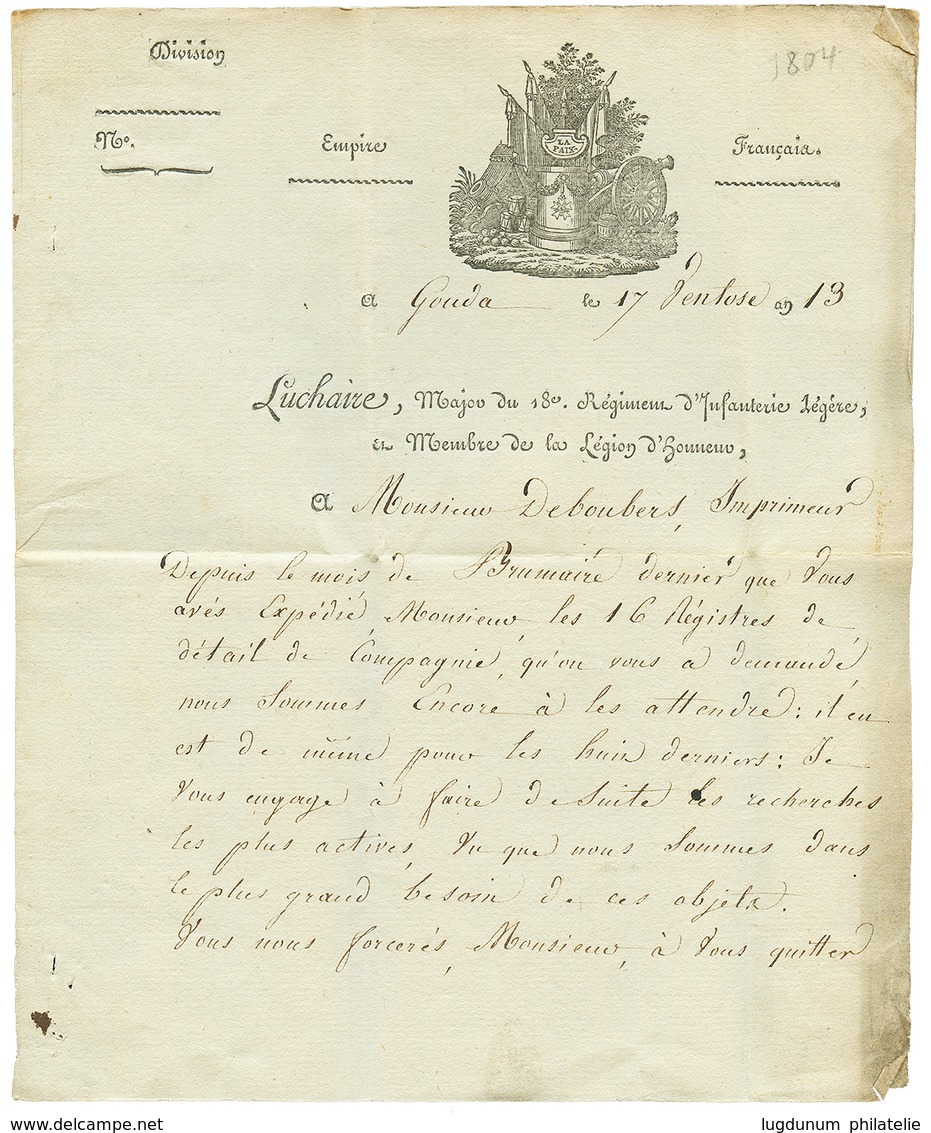 Division
1804
Nº.
Empire
Français.
LA
PAIX.
A Gouda le 17 Ventose an 13
Luchaire, Major du 18e. Régiment d'Infanterie Légère,
et Membre de la Légion d'Honneur,
A Monsieur Deboubers, Imprimeur
Depuis le mois de Brumaire dernier que Vous
avés Expédié, Monsieur, les 16 Régistres de
détail de Compagnie, qu'on vous a demandé,
nous Sommes Encore à les attendre: il en
est de même pour les huit derniers: Je
Vous engage à faire de Suite les recherches
les plus actives, Vu que nous Sommes dans
le plus grand besoin de ces objets.
Vous nous forcerés, Monsieur, à Vous quitter
delcampe.net
lugdunum philatelie